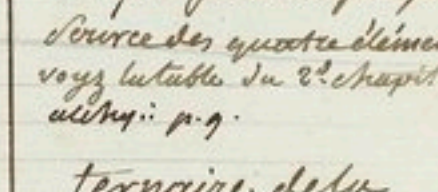 Source des quatre éléme
voyz la table du 2d. chapit
alchy.: p. 9.
ternaire, de la